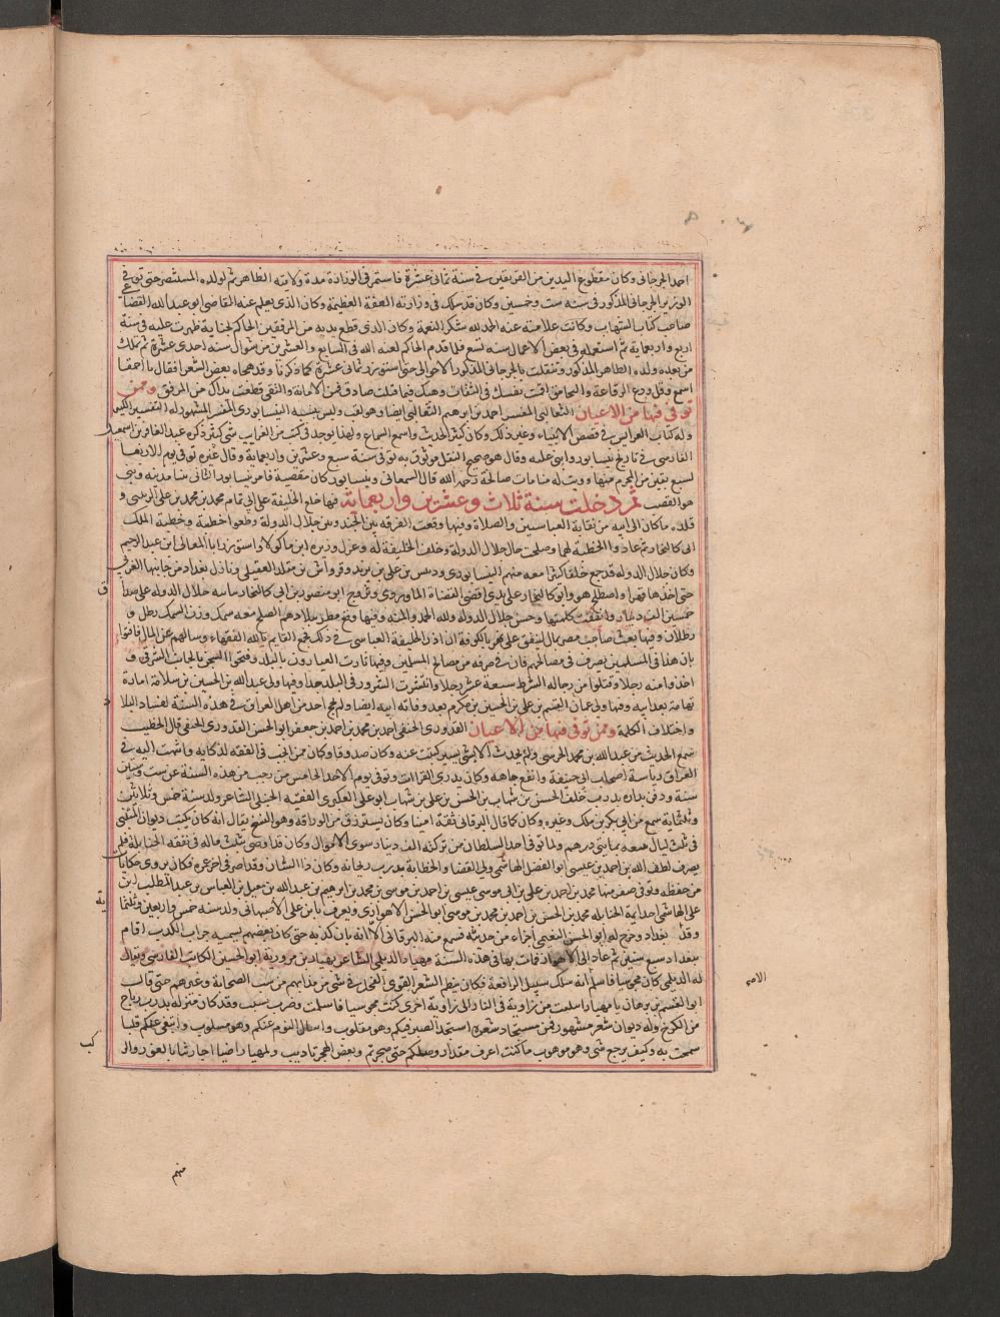 احمد الجرجرانى وكان مقطوع اليدين من المرفقين فى سنة ثمانى عشرة فاستمر فى الوزارة مدة ولايته الظاهر ثم لولده المستنصر حتى توفى
الوزير الجرجرانى المذكور فى سنه ست وخمسين وكان قد سلك فى وزارته العفة العظيمة وكان الذى يعلم عنه القاضى ابو عبد الله القضاعى
صاحب كتاب الشهاب وكانت علامته عنه الحمد لله شكر النعمة وكان الذى قطع يديه من المرفقين الحاكم لجناية ظهرت عليه فى سنة
اربع واربعماية ثم استعمله فى بعض الاعمال سنه تسع فلما قدم الحاكم لعنه الله فى السابع والعشرين من شوال سنه احدى عشرة ثم ملك
من بعده ولده الظاهر المذكور وتنقلت بالجرجرانى المذكور الاحوال حتى استوزر سنه ثمانى عشرة كما ذكرنا وقد هجاه بعض الشعرا فقال يا احمقا
اسمع وقل ودع الرقاعة والتحامق اقمت نفسك فى الثقات وهبك فيما قلت صادق فمن الامانة والتقى قطعت يداك من المرفق وممن
توفى فيها من الاعيان الثعالبى المفسر احمد بن ابرهيم الثعالبى ايضا وهو لقب وليس بنسبه النيسابورى المفسر المشهور له التفسير الكبير
وله كتاب العرايس فى قصص الانبياء وغير ذلك وكان كثير الحديث واسع السماع ولهذا يوجد فى كتبه من الغرايب شى كثير ذكره عبد الغافر بن اسمعيل
الفارسى فى تاريخ نيسابور واثنى عليه وقال هو صحيح النقل موثوق به توفى سنة سبع وعشرين واربعماية وقال غيره توفى يوم الاربعا
لسبع بقين من المحرم منها ورويت له منامات صالحة رحمه الله قال السمعانى ونيسابور كان مقصبة فامر سابور الثانى ببنا مدينه ونى
هو القصب ثم دخلت سنة ثلاث وعشرين واربعماية فيها خلع الخليفة على ابى تمام محمد بن محمد بن على الزينبى و
قلده ما كان الى ابيه من نقابة العباسيين والصلاة وفيها وقعت الفرقه بين الجند وبين جلال الدولة وقطعوا خطبته وخطبة الملك
ابى كاليجار ثم عادوا الخطبة لهما وصلحت حال جلال الدولة وحلف الخليفة له وعزل وزيره ابن ماكولا واستوزر ابا المعالى ابن عبد الرحيم
وكان جلال الدوله قد جمع خلقا كثيرا معه منهم البساسيرى ودبيس بن على بن مزيد وقرواش بن مقلد العقيلى ونازل بغداد من جانبها الغربى
حتى اخذها قهرا واصطلح هو وابو كاليجار على يدى اقضى القضاة الماوردى وتزوج ابو منصور بن ابى كاليجار بابنه جلال الدوله على صداق
خمسين الف دينار واتفقت كلمتها وحسن جلال الدولة ولله الحمد والمنه وفيها وقع مطر ببلادهم الصلح معه سمك وزن السمكه رطل و
رطلان وفيها بعث صاحب مصر بمال لينفق على نهر بالكوفة ان اذن الخليفة العباسى فى ذلك فجمع القايم بالله الفقهاء وسالهم عن المال فافتوا
بان هذا فى للمسلمين يصرف فى مصالحهم فاذن فى صرفه من مصالح المسلمين وفيها ثارت العيارون بالبلد وفتحوا السجن بالجانب الشرقى و
اخذوا منه رجلا وقتلوا من رجاله الشرط سبعة عشر رجلا وانتشرت الشرور فى البلد جدا وفيها ولى عبد الله بن الحسين بن سلامة امارة
تهامة بعد ابيه وفيها ولى عمان القسم بن على بن الحسين بن مكرم بعد وفاته ابيه ايضا ولم يحج احد من اهل العراق فى هذه السنة لفساد البلا
واختلاف الكلمة وممن توفى فيها من الاعيان القدورى الحنفى احمد بن محمد بن احمد بن جعفر ابو الحسن القدورى الحنفى قال الخطيب
سمع الحديث من عبيد الله بن محمد الحوشبى ولم يحدث الا بشى يسير كتبت عنه وكان صدوقا وكان ممن انجب فى الفقه لذكايه وانتهت اليه فى
العراق رياسة اصحاب ابى حنيفة وارتفع جاهه وكان يدرى القرات وتوفى يوم الاحد الخامس من رجب من هذه السنة عن ست وستين
سنة ودفن بداره بدرب خلف الحسن بن شهاب بن الحسن بن على بن شهاب ابو على العكبرى الفقيه الحنبلى الشاعر ولد سنة خمس وثلاثين
وثلثماية سمع من ابى بكر بن مالك وغيره وكان كما قال البرقانى ثقة امينا وكان يسترزق من الوراقة وهو النسخ يقال انه كان يكتب ديوان المتنبى
فى ثلث ليال فيبيعه بمايتى درهم ولما توفى اخذ السلطان من تركته الف دينار سوى الاموال وكان قد اوصى بثلث ماله فى نفقه الحنابلة فلم
يصرف لطف الله بن احمد بن عيسى ابو الفضل الهاشمى ولى القضا والخطابة بدرب ريحانة وكان ذا لسان وقد اضر فى اخر عمره فكان يروى حكايات
من حفظه وتوفى صفر منها محمد بن احمد بن على بن ابى موسى عيسى بن احمد بن موسى بن محمد بن ابرهيم بن عبد الله بن معبد بن العباس بن عبد المطلب ابو
على الهاشمى احد ايمة الحنابله محمد بن الحسن بن احمد بن محمد بن موسى ابو الحسن الاهوازى ويعرف بابن على الاصبهانى ولد سنه خمس واربعين وثلثماية
وقدم بغداد وخرج له ابو الحسن النعيمى اجزاء من حديثه فسمع منه البرقانى الا انه بان كذبه حتى كان بعضهم يسميه جراب الكذب اقام
ببغداد سبع سنين ثم عاد الى الاهواز فمات بها فى هذه السنة مهيار الديلمى الشاعر مهيار بن مرزويه ابو الحسين الكاتب الفارسى ويقال
له الديلمى كان مجوسيا فاسلم الا انه سلك سبيل الرافضة فكان ينظم الشعر القوى الفحل فى شى من مذاهبهم من سب الصحابة وغيرهم حتى قال له
ابو القسم بن برهان يا مهيار اسلمت من زاوية فى النار الى زاوية اخرى كنت مجوسيا فاسلمت وضرب تسب وقد كان منزله بدرب رباح
من الكرخ وله ديوان شعر مشهور فمن مستجاد شعره استنجد الصبر فيكم وهو مغلوب واسال النوم عنكم وهو مسلوب وابتغى عندكم قلبا
سمحت به وكيف يرجع شى وهو موهوب ما كنت اعرف مقدار وصلكم حتى هجرتم وبعض الهجر تاديب ولمهيار ايضا اجارتنا بالغور والر
منهم